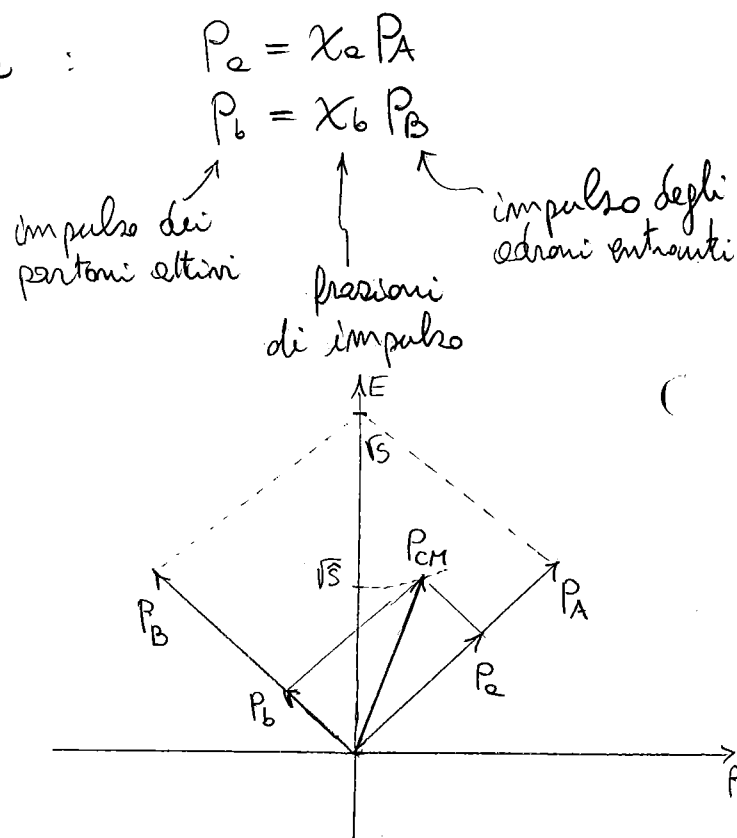 : Pa = xa PA
Pb = xb PB
impulso dei
partoni attivi
frazioni
di impulso
impulso degli
adroni entranti
(
E
√s
√ŝ
PCM
PB
PA
Pb
Pa